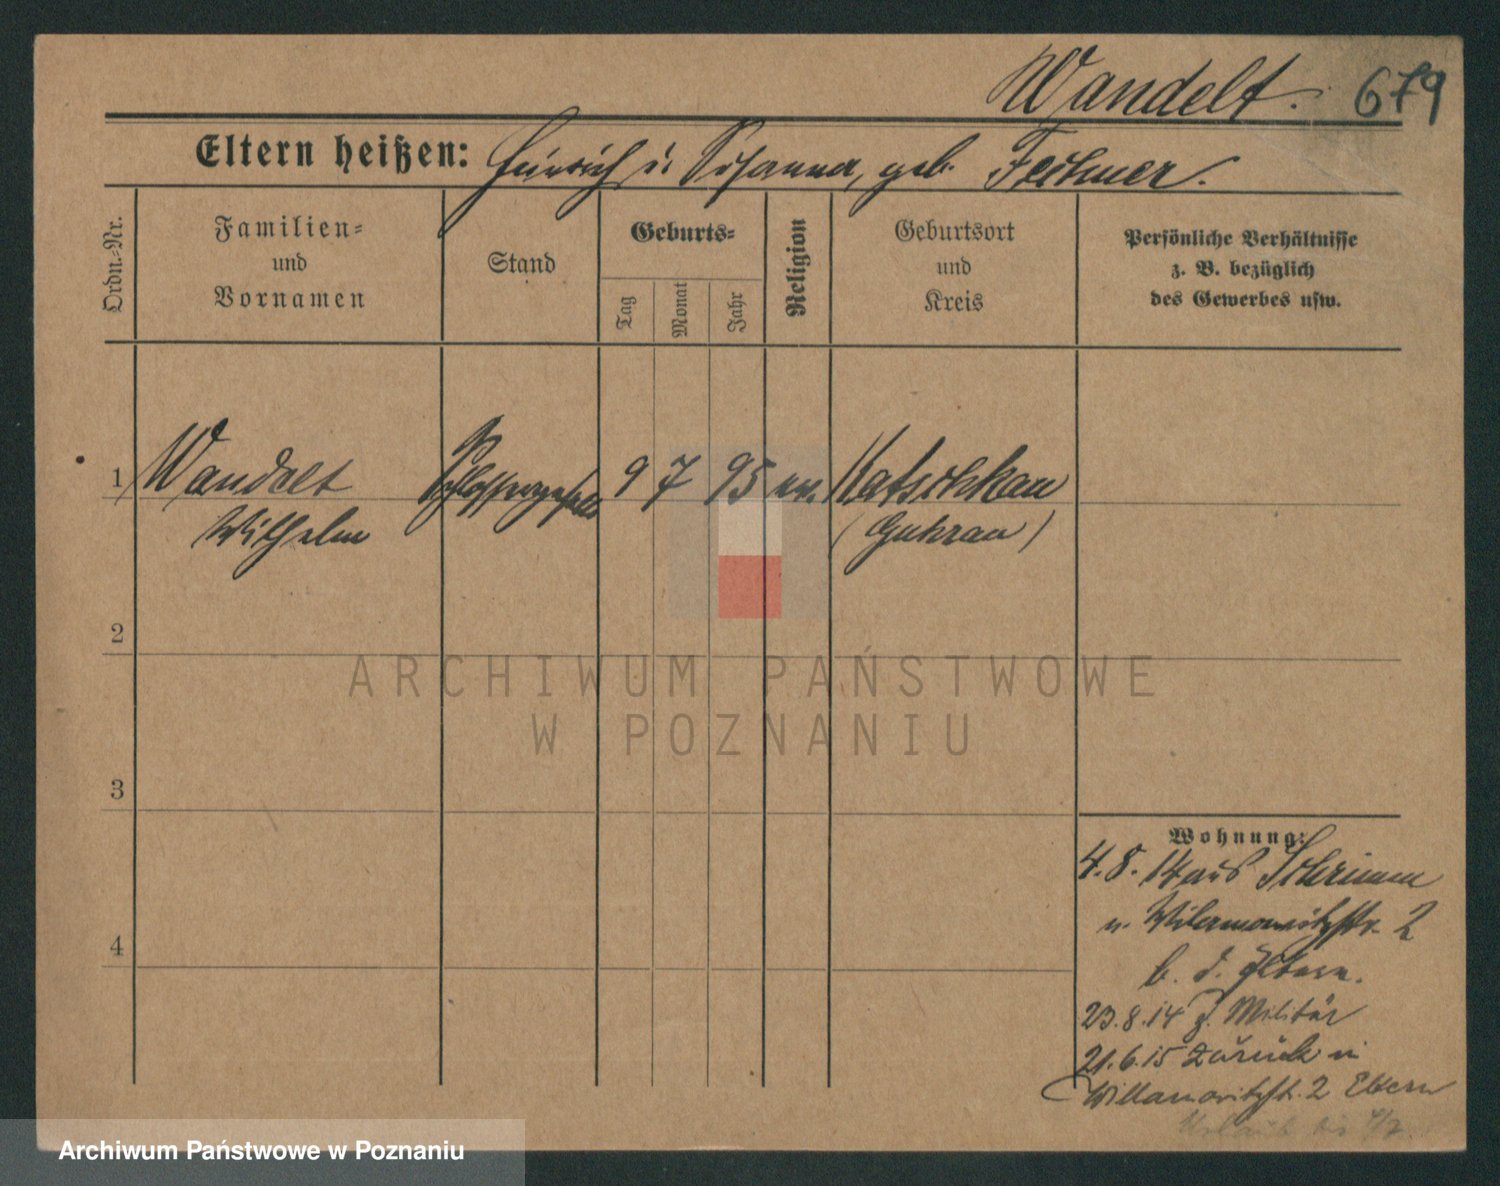 Wandelt. 679
Eltern heißen: Heinrich u. Susanna, geb. Feihmer.
Ordn.-Nr.
Familien-
und
Vornamen
Stand
Geburts-
Tag
Monat
Jahr
Religion
Geburtsort
und
Kreis
Persönliche Verhältnisse
z. B. bezüglich
des Gewerbes usw.
1 Wandelt Schlossergeselle 9 7 95 ev. Katschkau
Wilhelm (Guhrau)
2
3
4
Wohnung:
4.8.14 aus Schrimm
n. Wilamowitzstr. 2
b. d. Eltern.
23.8.14 z. Militär
21.6.15 zurück n
Willamowitzstr. 2 Eltern
Urlaub bis
ARCHIWUM PAŃSTWOWE
W POZNANIU
Archiwum Państwowe w Poznaniu